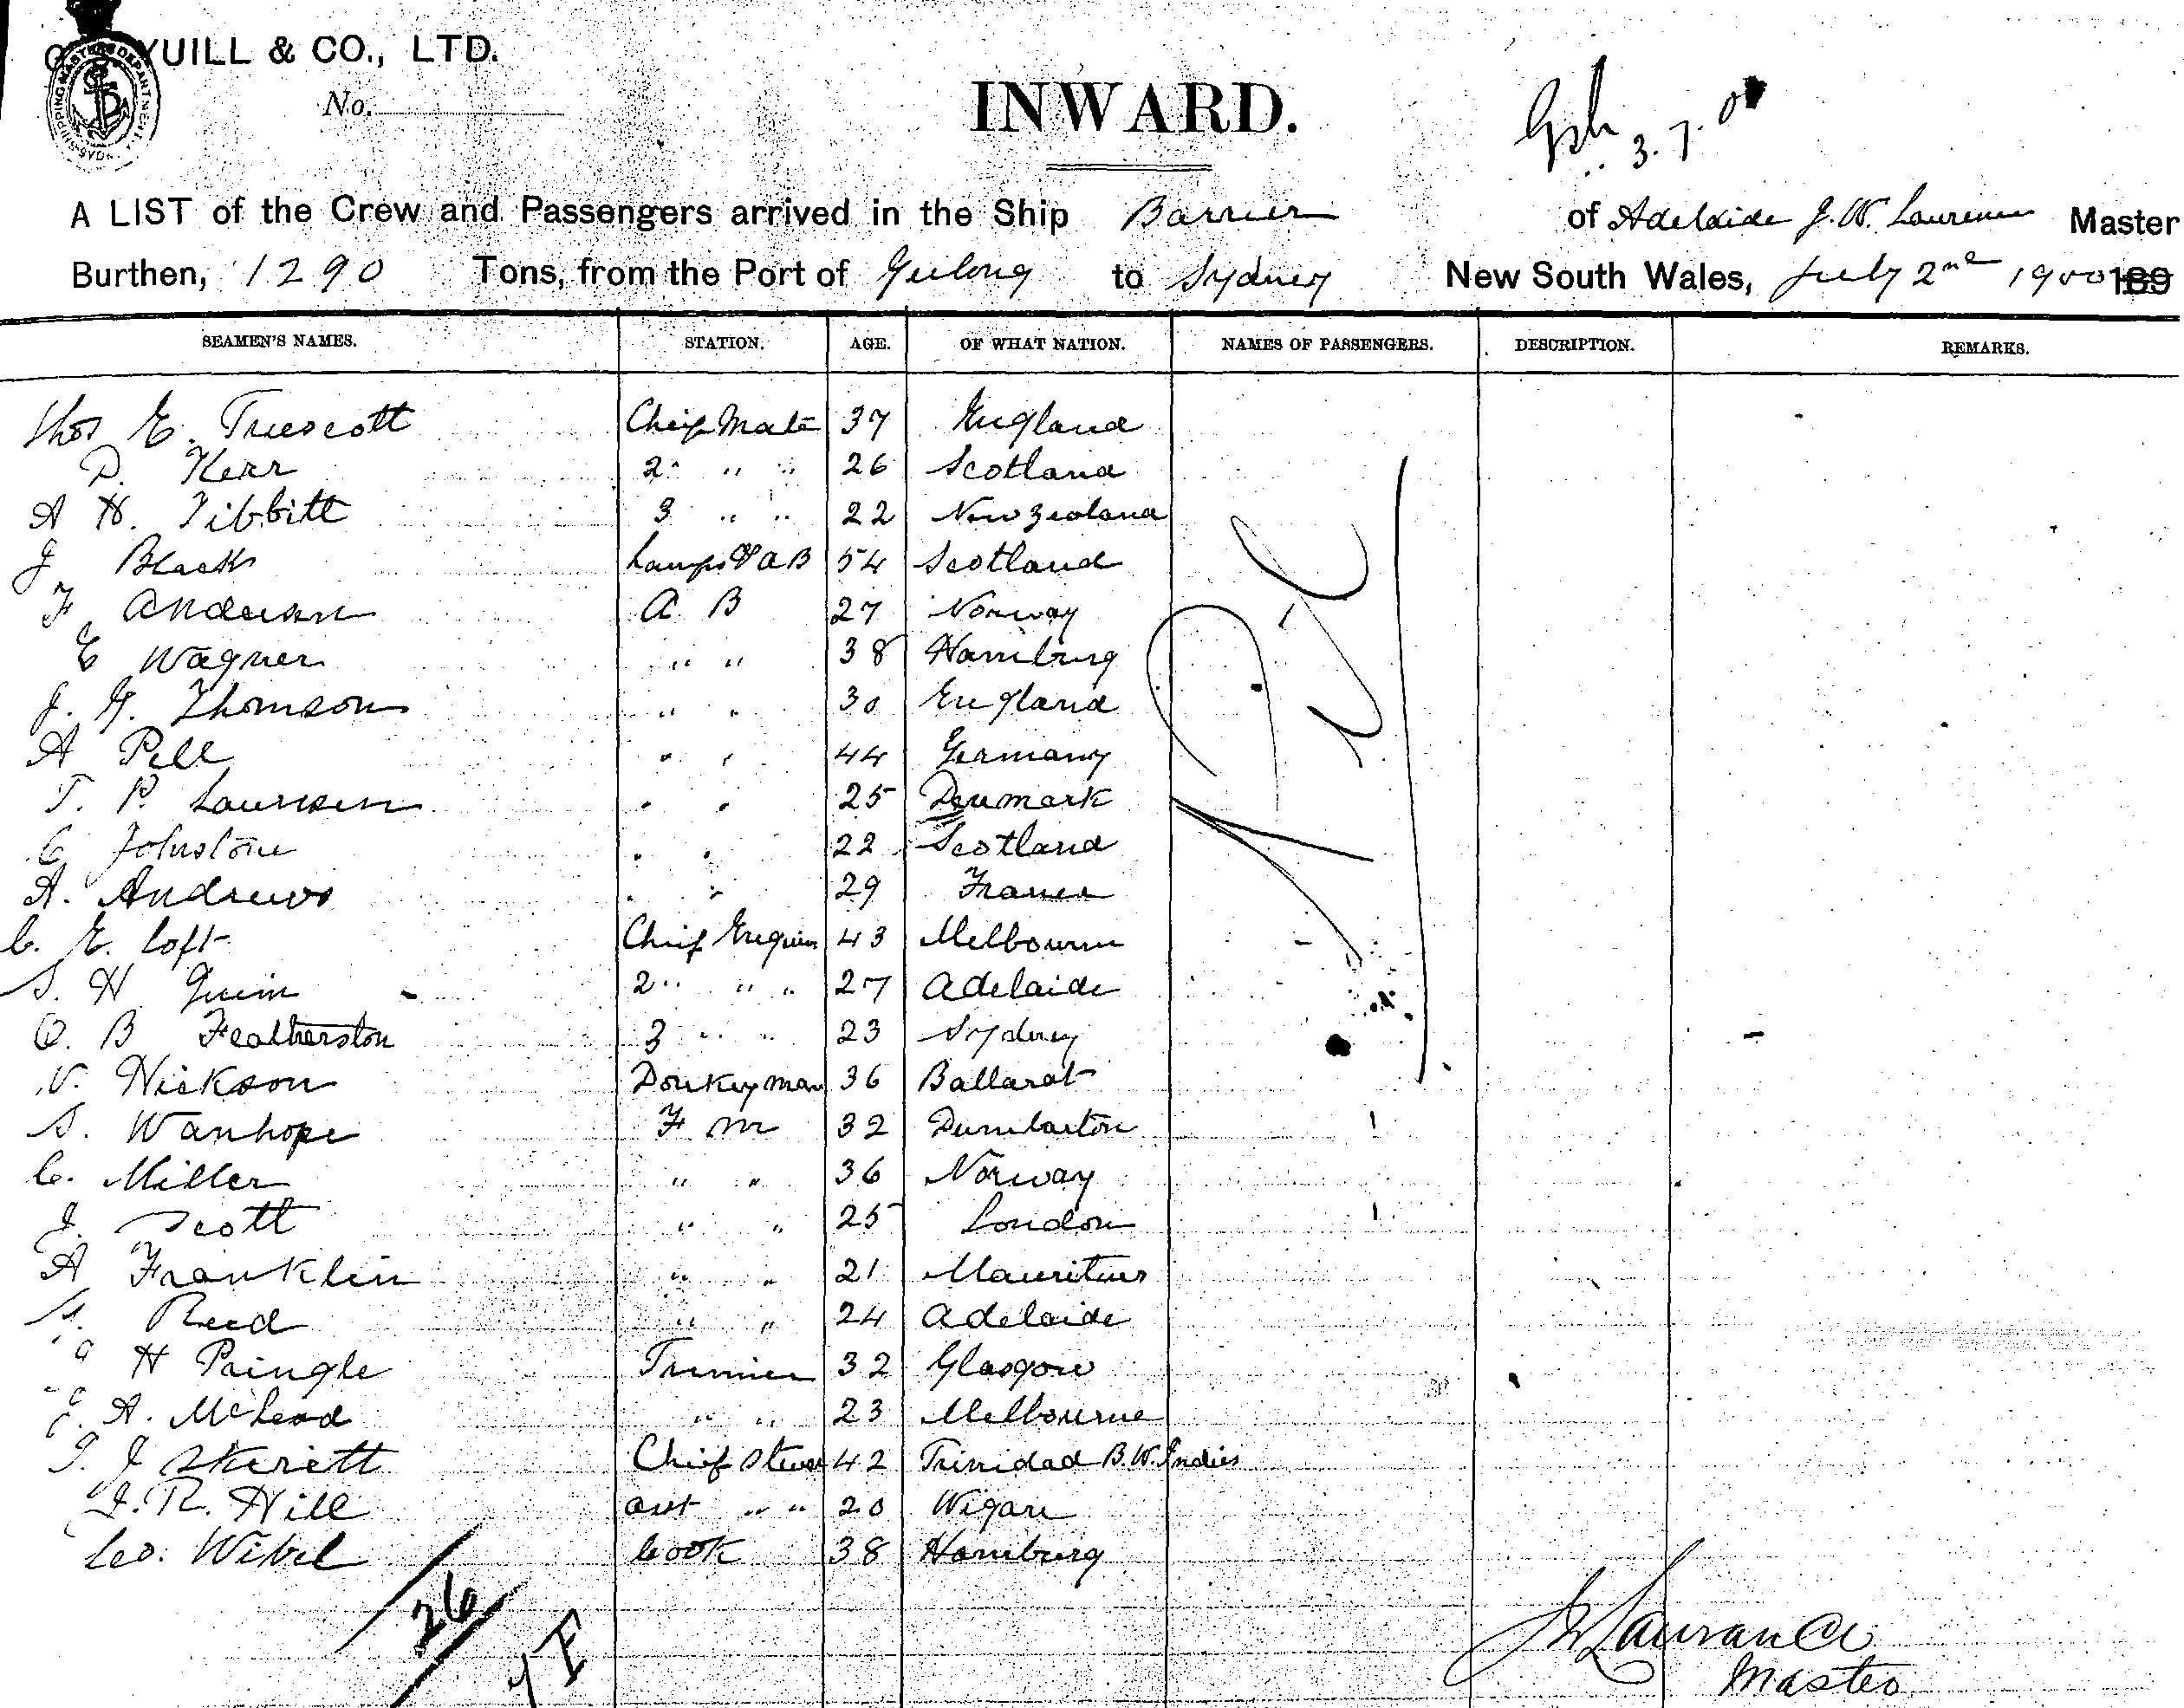 YUILL & CO., LTD.
SHIPPING MASTERS DEPARTMENT
No.
INWARD.
3.7.00
A LIST of the Crew and Passengers arrived in the Ship Barrier of Adelaide J. W. Laurence Master
Burthen, 1290 Tons, from the Port of Geelong to Sydney New South Wales, July 2nd 1900 189
SEAMEN'S NAMES. STATION. AGE. OF WHAT NATION. NAMES OF PASSENGERS. DESCRIPTION. REMARKS.
Thos E. Truscott Cheif Mate 37 England
D. Kerr 2 " " 26 Scotland
A H. Tibbitt 3 " " 22 New Zealand
J Black Lamps & AB 54 Scotland
F Anderson A B 27 Norway
E Wagner " " 38 Hamburg
J. G. Thomson " " 30 England
A Pell " " 44 Germany
T. P. Laursen " " 25 Denmark
C Johnstone " " 22 Scotland
A. Andrews " " 29 France
C. E. Coft Chief Engineer 43 Melbourne
S. H 2 " " " 27 Adelaide
O. B Featherston 3 " " 23 Sydney
V. Hickson Donkeyman 36 Ballarat
S. Wanhope F m 32 Dumbarton
C. Miller " " 36 Norway
J. Scott " " 25 London
A Franklin " " 21 Mauritius
Reed " " 24 Adelaide
H Pringle Trimmer 32 Glasgow
A. McLeod " " 23 Melbourne
J Skerett Chief Stewd 42 Trinidad B. W. Indies
J. R. Hill asst " " 20 Wigan
Geo. Wibel Cook 38 Hamburg
26
J W Laurance
Master